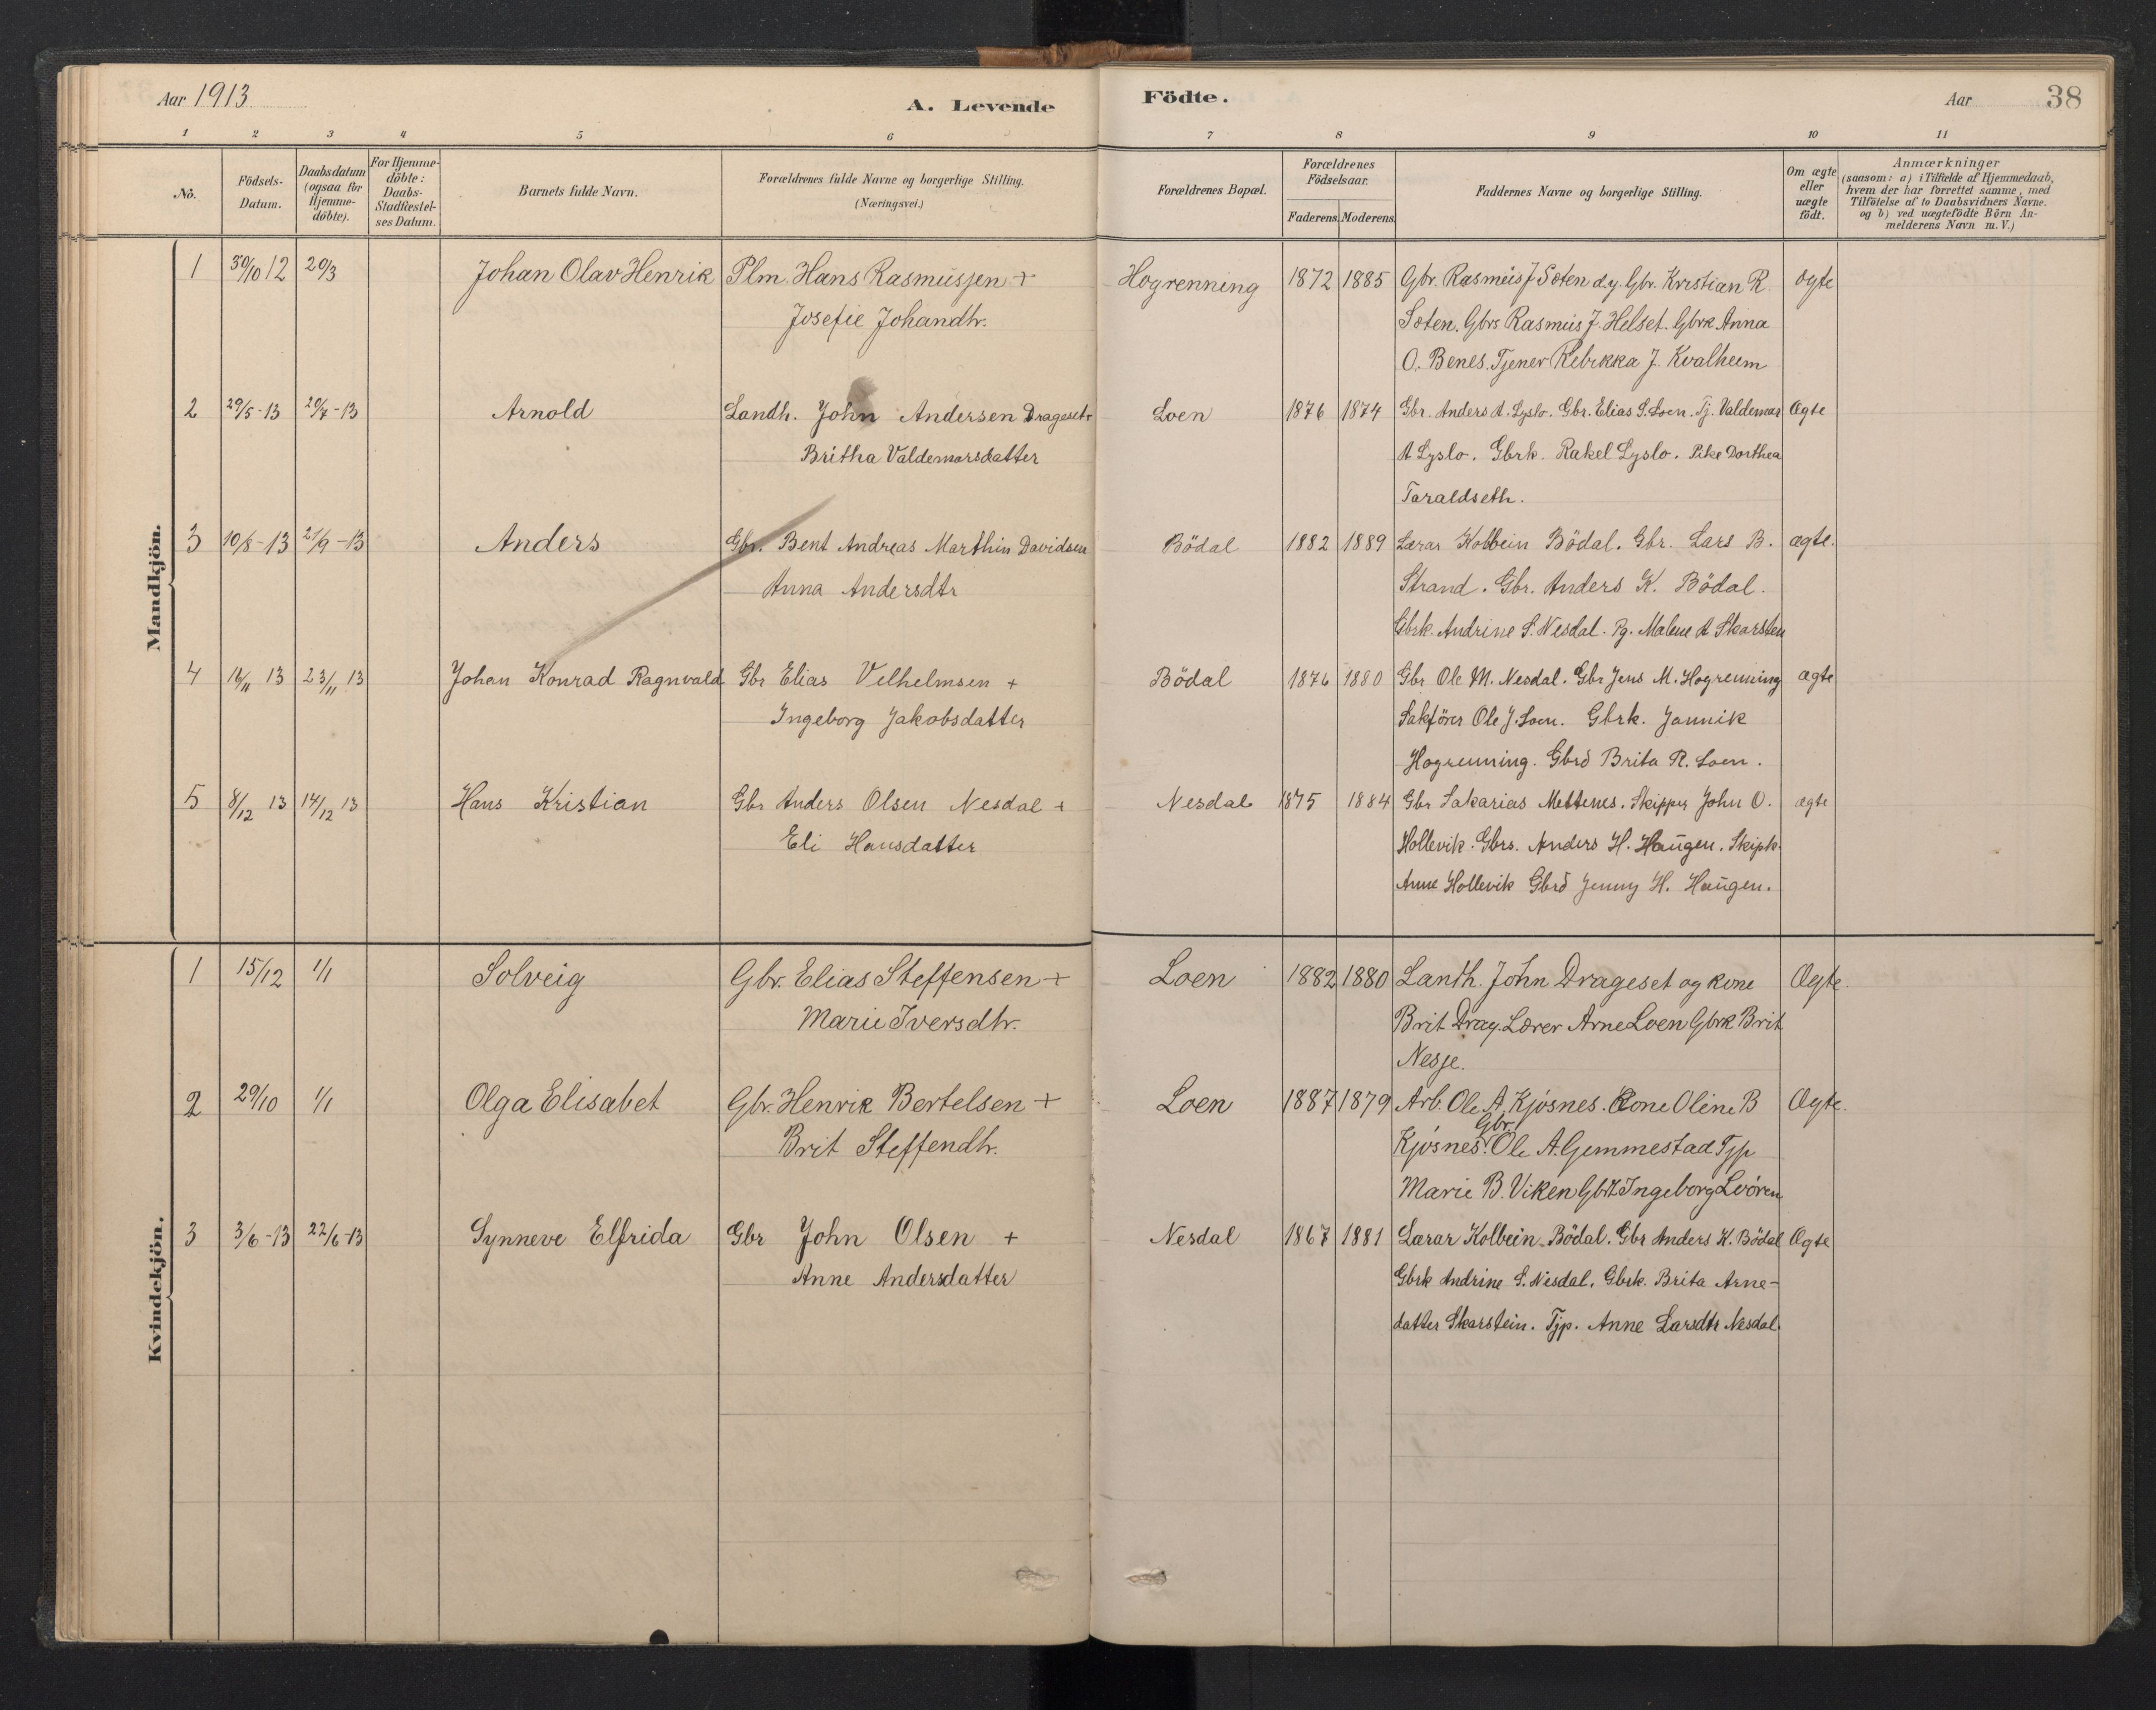 Aar 1913
A. Levende Födte.
Aar
38
1 2 3 4 5 6 7 8 9 10 11
No.
Födsels-Datum.
Daabsdatum (ogsaa for Hjemme-döbte).
For Hjemme-döbte: Daabs-Stadfæstel-ses Datum.
Barnets fulde Navn.
Forældrenes fulde Navne og borgerlige Stilling.
(Næringsvei.)
Forældrenes Bopæl.
Forældrenes Födselsaar.
Faderens. Moderens.
Faddernes Navne og borgerlige Stilling.
Om ægte eller uægte födt.
Anmærkninger
(saasom: a) i Tilfælde af Hjemmedaab,
hvem der har forrettet samme, med
Tilföielse af to Daabsvidners Navne.
og b) ved uægtefödte Börn An-
melderens Navn m. V.)
Mandkjön.
1 30/10 12 29/3 Johan Olav Henrik Plm. Hans Rasmussen + Hogrenning 1872 1885 Gbr. Rasmus J Sæten d.y. Gbr. Kristian R. ægte
Josefie Johandtr. Sæten. Gbrs Rasmus J. Helset. Gbrk Anna
O. Benes. Tjener Rebekka J. Kvalheim
2 29/5-13 20/7-13 Arnold Landh. John Andersen Drageset + Loen 1876 1874 Gbr. Anders A. Lyslo. Gbr. Elias S. Loen. Tj. Valdemar Ægte
Britha Valdemarsdatter A Lyslo. Gbrk. Rakel Lyslo. Pike Dorthea
Taraldseth.
3 10/8-13 21/9-13 Anders Gbr. Bent Andreas Marthin Davidsen Bödal 1882 1889 Lærar Kolbein Bödal. Gbr. Lars B. ægte.
Anna Andersdtr Strand. Gbr. Anders K. Bödal.
Gbrk. Andrine S. Nesdal. Pg. Malene A Skarsten
4 16/11 13 23/11 13 Johan Konrad Ragnvald Gbr Elias Velhelmsen + Bödal 1876 1880 Gbr Ole M. Nesdal. Gbr Jens M. Hogrenning ægte
Ingeborg Jakobsdatter Sakförer Ole J. Loen. Gbrk. Jannik
Hogrenning. Gbrd Brita R. Loen.
5 8/12 13 14/12 13 Hans Kristian Gbr Anders Olsen Nesdal + Nesdal 1875 1884 Gbr Sakarias Mettenes. Skipper John O. ægte
Eli Hansdatter Hollevik. Gbrs. Anders H. Haugen. Skipk.
Anne Hollevik Gbrd Jenny H. Haugen.
Kvindekjön.
1 15/12 1/1 Solveig Gbr. Elias Steffensen + Loen 1882 1880 Landh. John Drageset og kone Ægte.
Marie Iversdtr. Brit Drag. Lærer Arne Loen Gbrk Brit
Nesje.
2 29/10 1/1 Olga Elisabet Gbr. Henrik Bertelsen + Loen 1887 1879 Arb. Ole A. Kjösnes. Kone Oline B Ægte.
Brit Steffendtr. Kjösnes. Gbr. Ole A. Gjemmestad Tjp
Marie B. Viken Gbrk Ingeborg Lvören
3 3/6-13 22/6-13 Synneve Elfrida Gbr John Olsen + Nesdal 1867 1881 Lærar Kolbein Bödal. Gbr Anders K. Bödal Ægte
Anne Andersdatter Gbrk Andrine S. Nesdal. Gbrk. Brita Arne-
datter Skarstein. Tjp. Anne Larsdtr Nesdal.